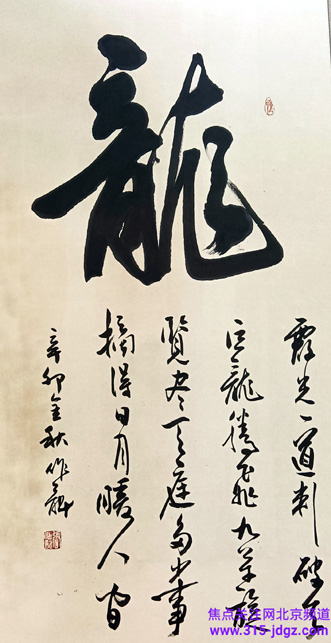 龍
霞光一道刺破
巨龍騰飛九
覽盡天庭多少事
摘得日月暖人間
辛卯金秋作龍
焦点关注网北京频道
www.315-jdgz.com